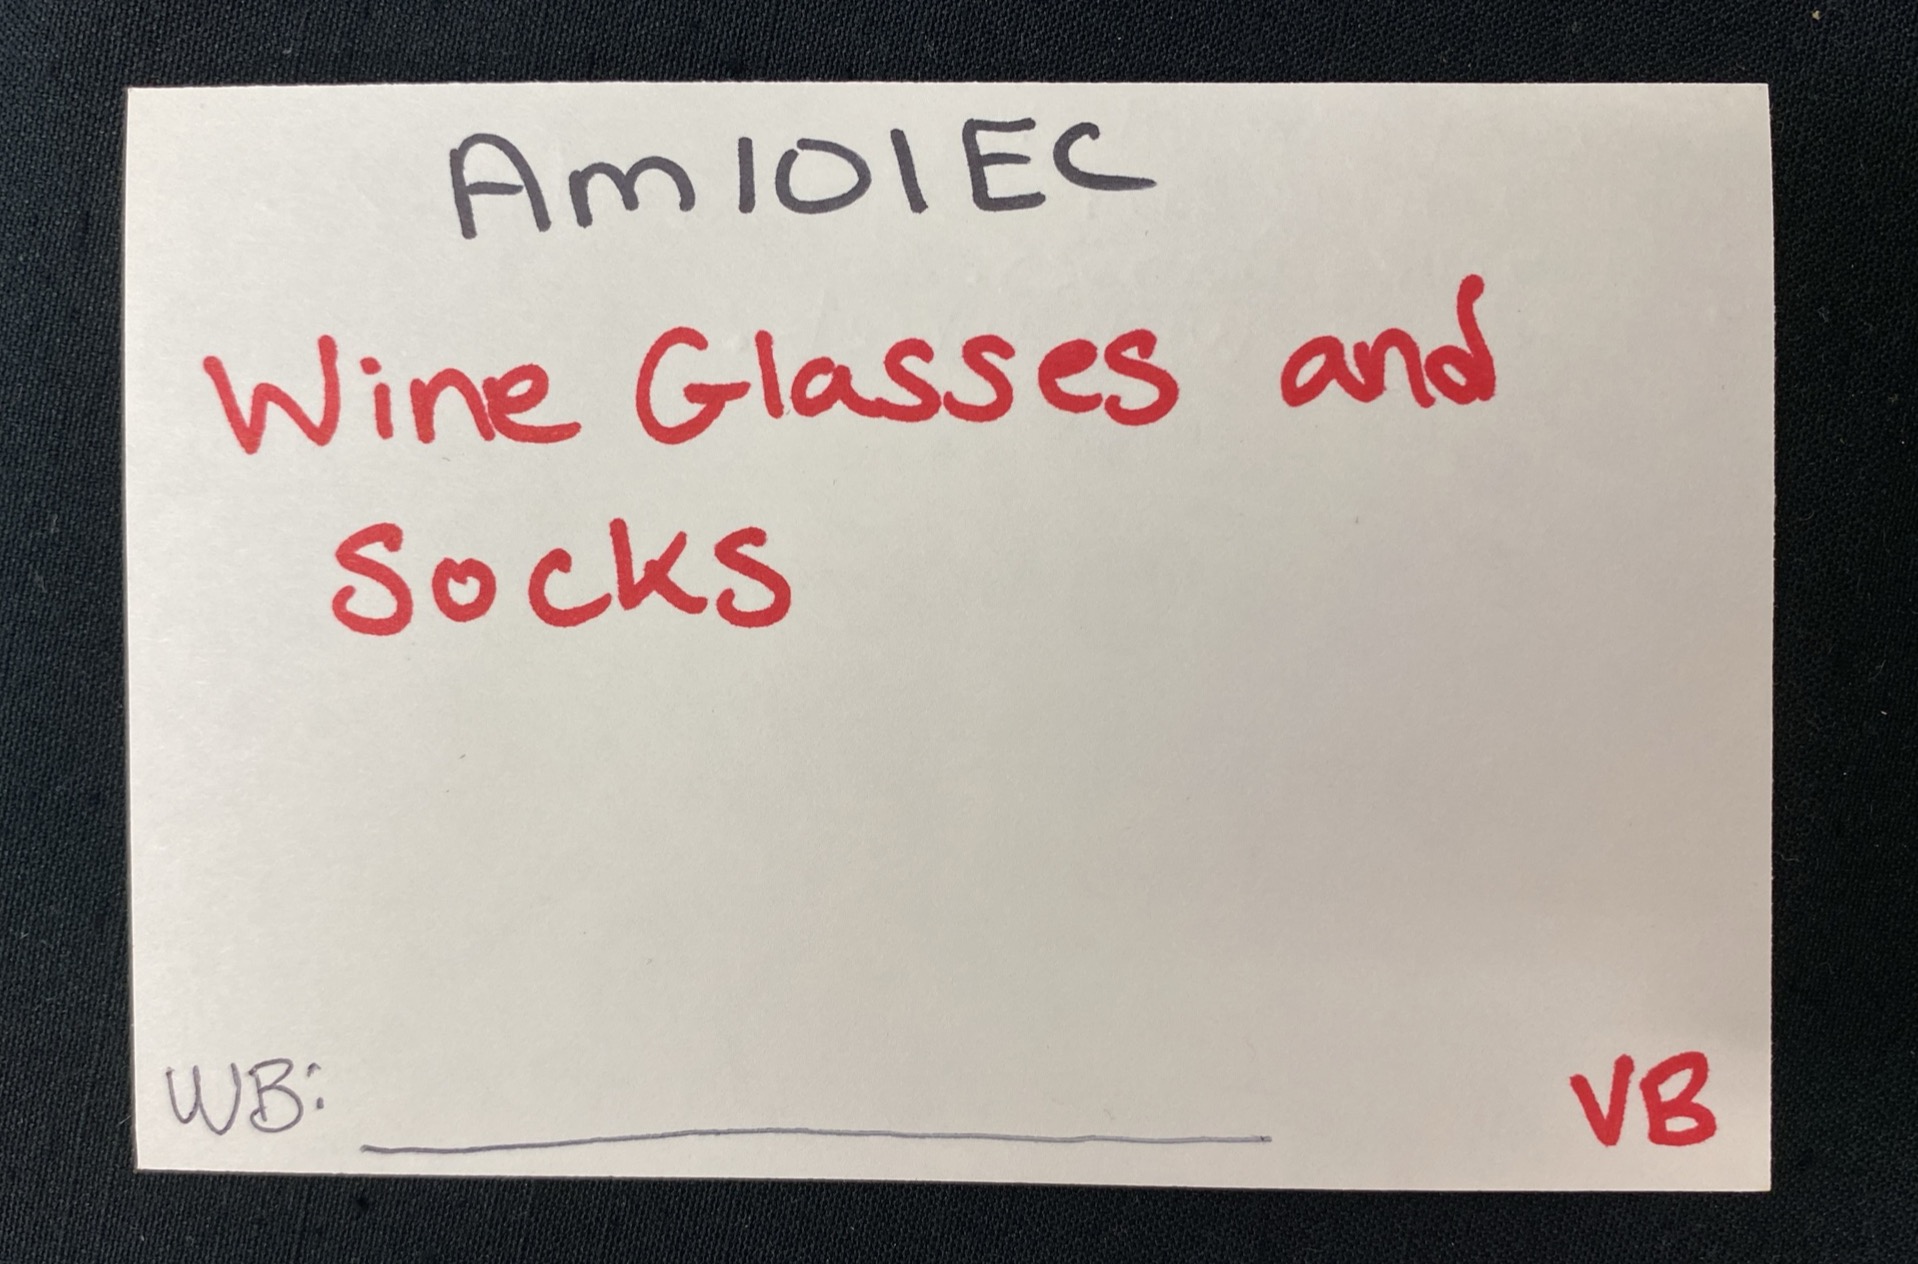 Am101EC
Wine Glasses and
Socks
WB:
VB